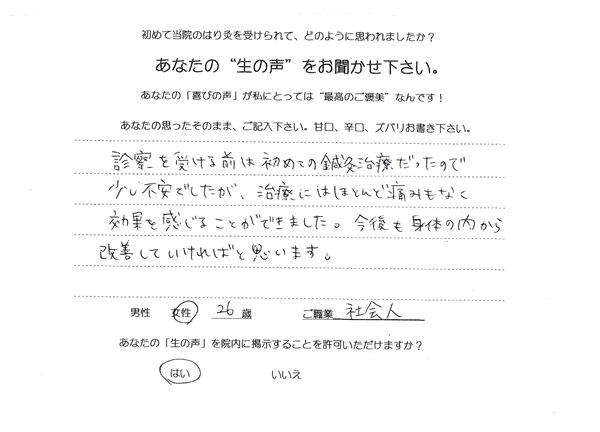 初めて当院のはり灸を受けられて、どのように思われましたか？
あなたの“生の声”をお聞かせ下さい。
あなたの「喜びの声」が私にとっては“最高のご褒美”なんです！
あなたの思ったそのまま、ご記入下さい。甘口、辛口、ズバリお書き下さい。
診察を受ける前は初めての鍼灸治療だったので
少し不安でしたが、治療にはほとんど痛みもなく
効果を感じることができました。今後も身体の内から
改善していければと思います。
男性 女性 26 歳 ご職業 社会人
あなたの「生の声」を院内に掲示することを許可いただけますか？
はい いいえ